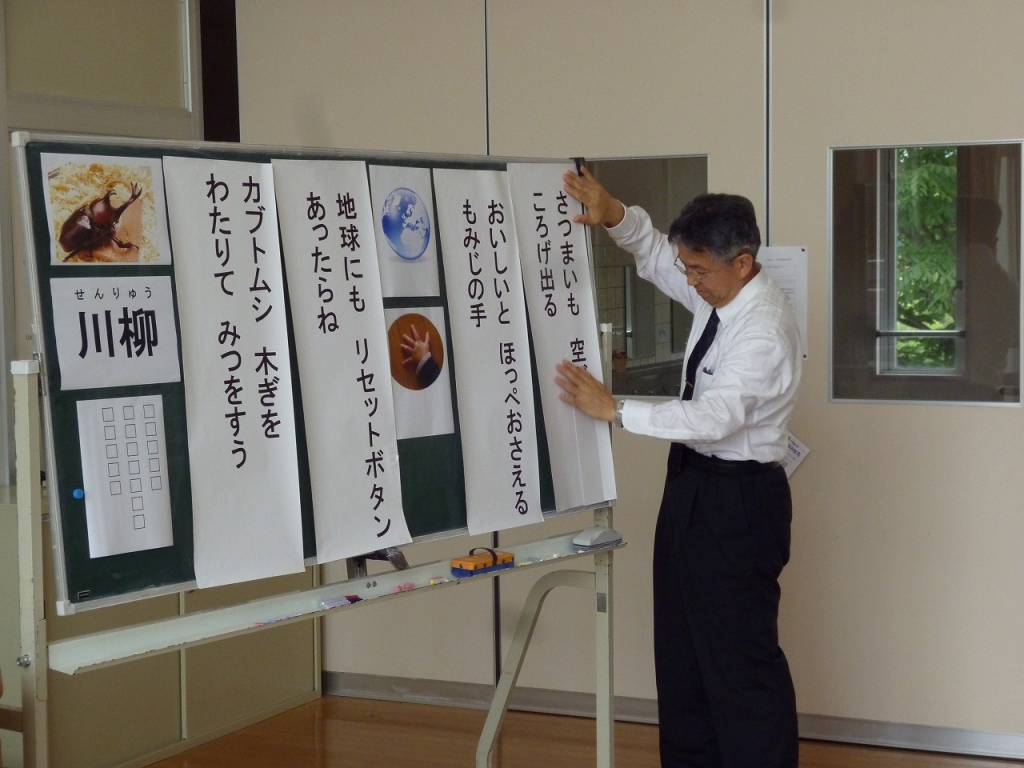 せんりゅう
川柳
カブトムシ 木ぎを
わたりて みつをすう
地球にも リセットボタン
あったらね
おいしいと ほっぺおさえる
もみじの手
さつまいも 空
ころげ出る